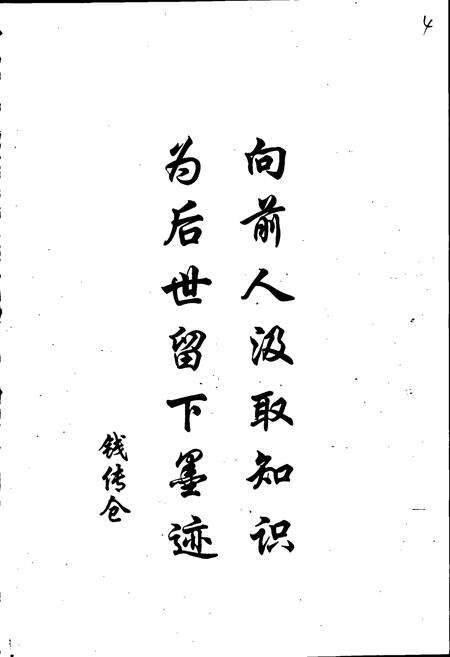 4
向前人汲取知识
为后世留下墨迹
钱传仓